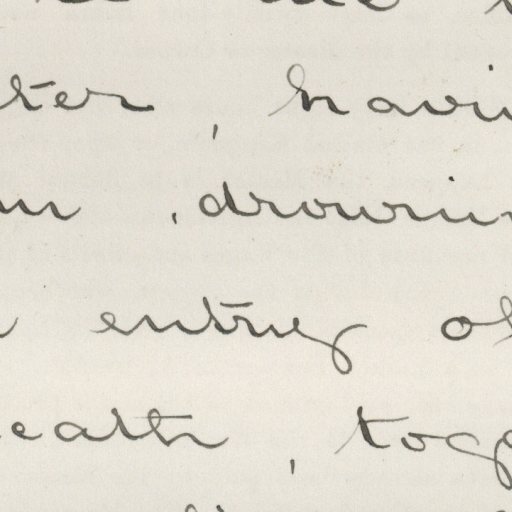 ter, havin
un, drownin
entry of
eath, toge